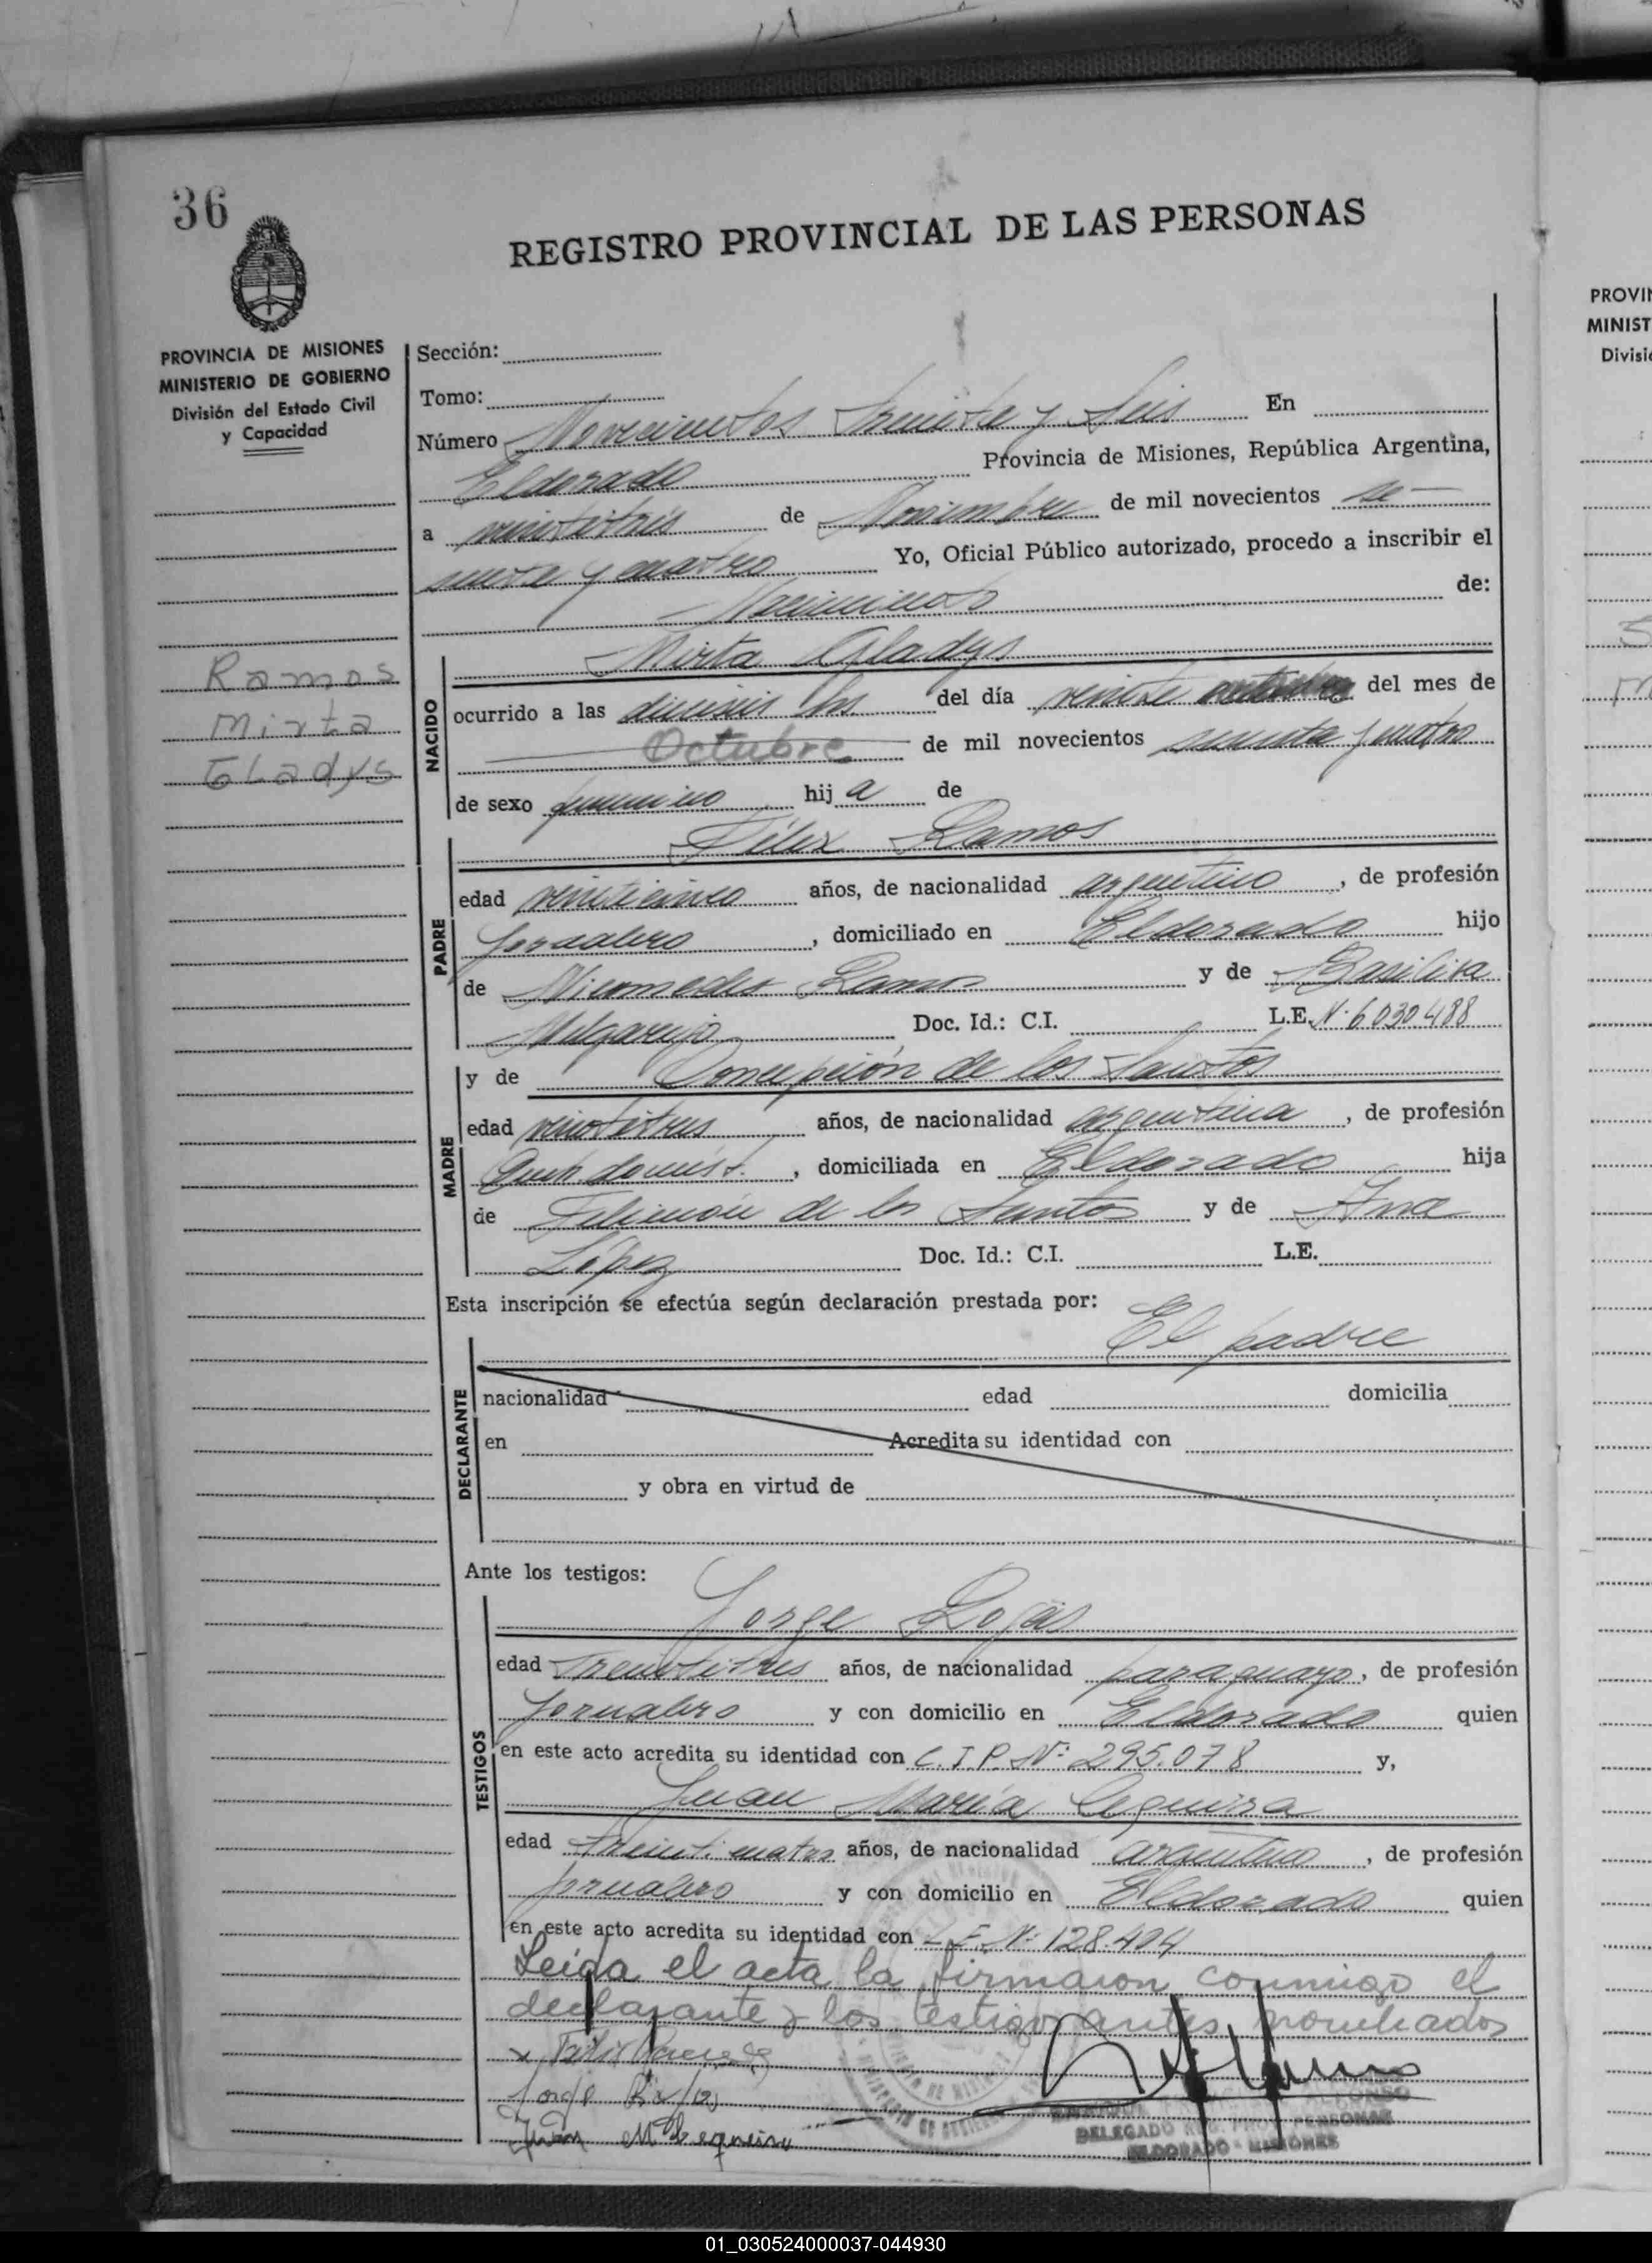 36
REGISTRO PROVINCIAL DE LAS PERSONAS
PROVINCIA DE MISIONES
MINISTERIO DE GOBIERNO
División del Estado Civil
y Capacidad
Ramos
Mirta
Gladys
Sección:
Tomo:
Número Novecientos treinta y seis En
Eldorado Provincia de Misiones, República Argentina,
a veintitrés de Noviembre de mil novecientos se-
senta y cuatro Yo, Oficial Público autorizado, procedo a inscribir el
Nacimiento de:
NACIDO
Mirta Gladys
ocurrido a las dieciséis hs del día veinte del mes de
Octubre de mil novecientos sesenta y cuatro
de sexo femenino hij a de
PADRE
Félix Ramos
edad veinticinco años, de nacionalidad argentino, de profesión
jornalero, domiciliado en Eldorado hijo
de Nicomedes Ramos y de Basilisa
Melgarejo Doc. Id.: C.I. L.E. Nº 6030488
MADRE
y de Concepción de los Santos
edad veintitres años, de nacionalidad argentina, de profesión
Queh. domést., domiciliada en Eldorado hija
de de los Santos y de Ana
López Doc. Id.: C.I. L.E.
Esta inscripción se efectúa según declaración prestada por:
El padre
DECLARANTE
nacionalidad edad domicilia
en Acredita su identidad con
y obra en virtud de
Ante los testigos:
TESTIGOS
Jorge Rojas
edad treintitres años, de nacionalidad paraguayo, de profesión
jornalero y con domicilio en Eldorado quien
en este acto acredita su identidad con C.I.P. Nº 295.078 y,
Juan María Cequeira
edad treinticuatro años, de nacionalidad argentino, de profesión
jornalero y con domicilio en Eldorado quien
en este acto acredita su identidad con L.E. Nº 128.404
Leída el acta la firmaron conmigo el
declarante y los testigos antes nombrados
x Felix Ramos
Jorge Rojas
Juan M Cequeira
DELEGADO REG. PROV. PERSONAS
ELDORADO - MISIONES
PROVIN
MINIST
Divisi
01_030524000037-044930